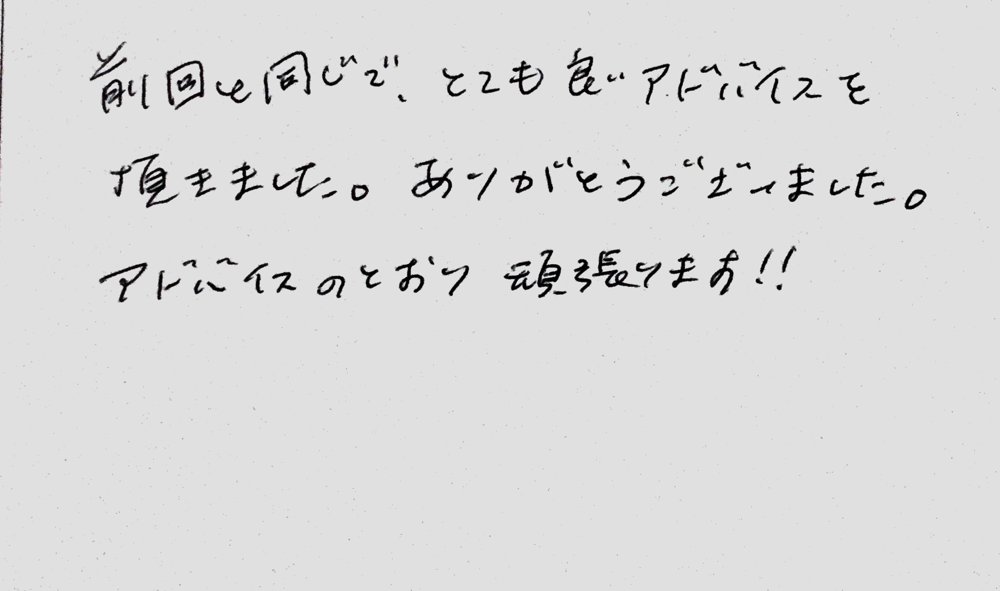 前回と同じで、とても良いアドバイスを
頂きました。ありがとうございました。
アドバイスのとおり頑張ります!!